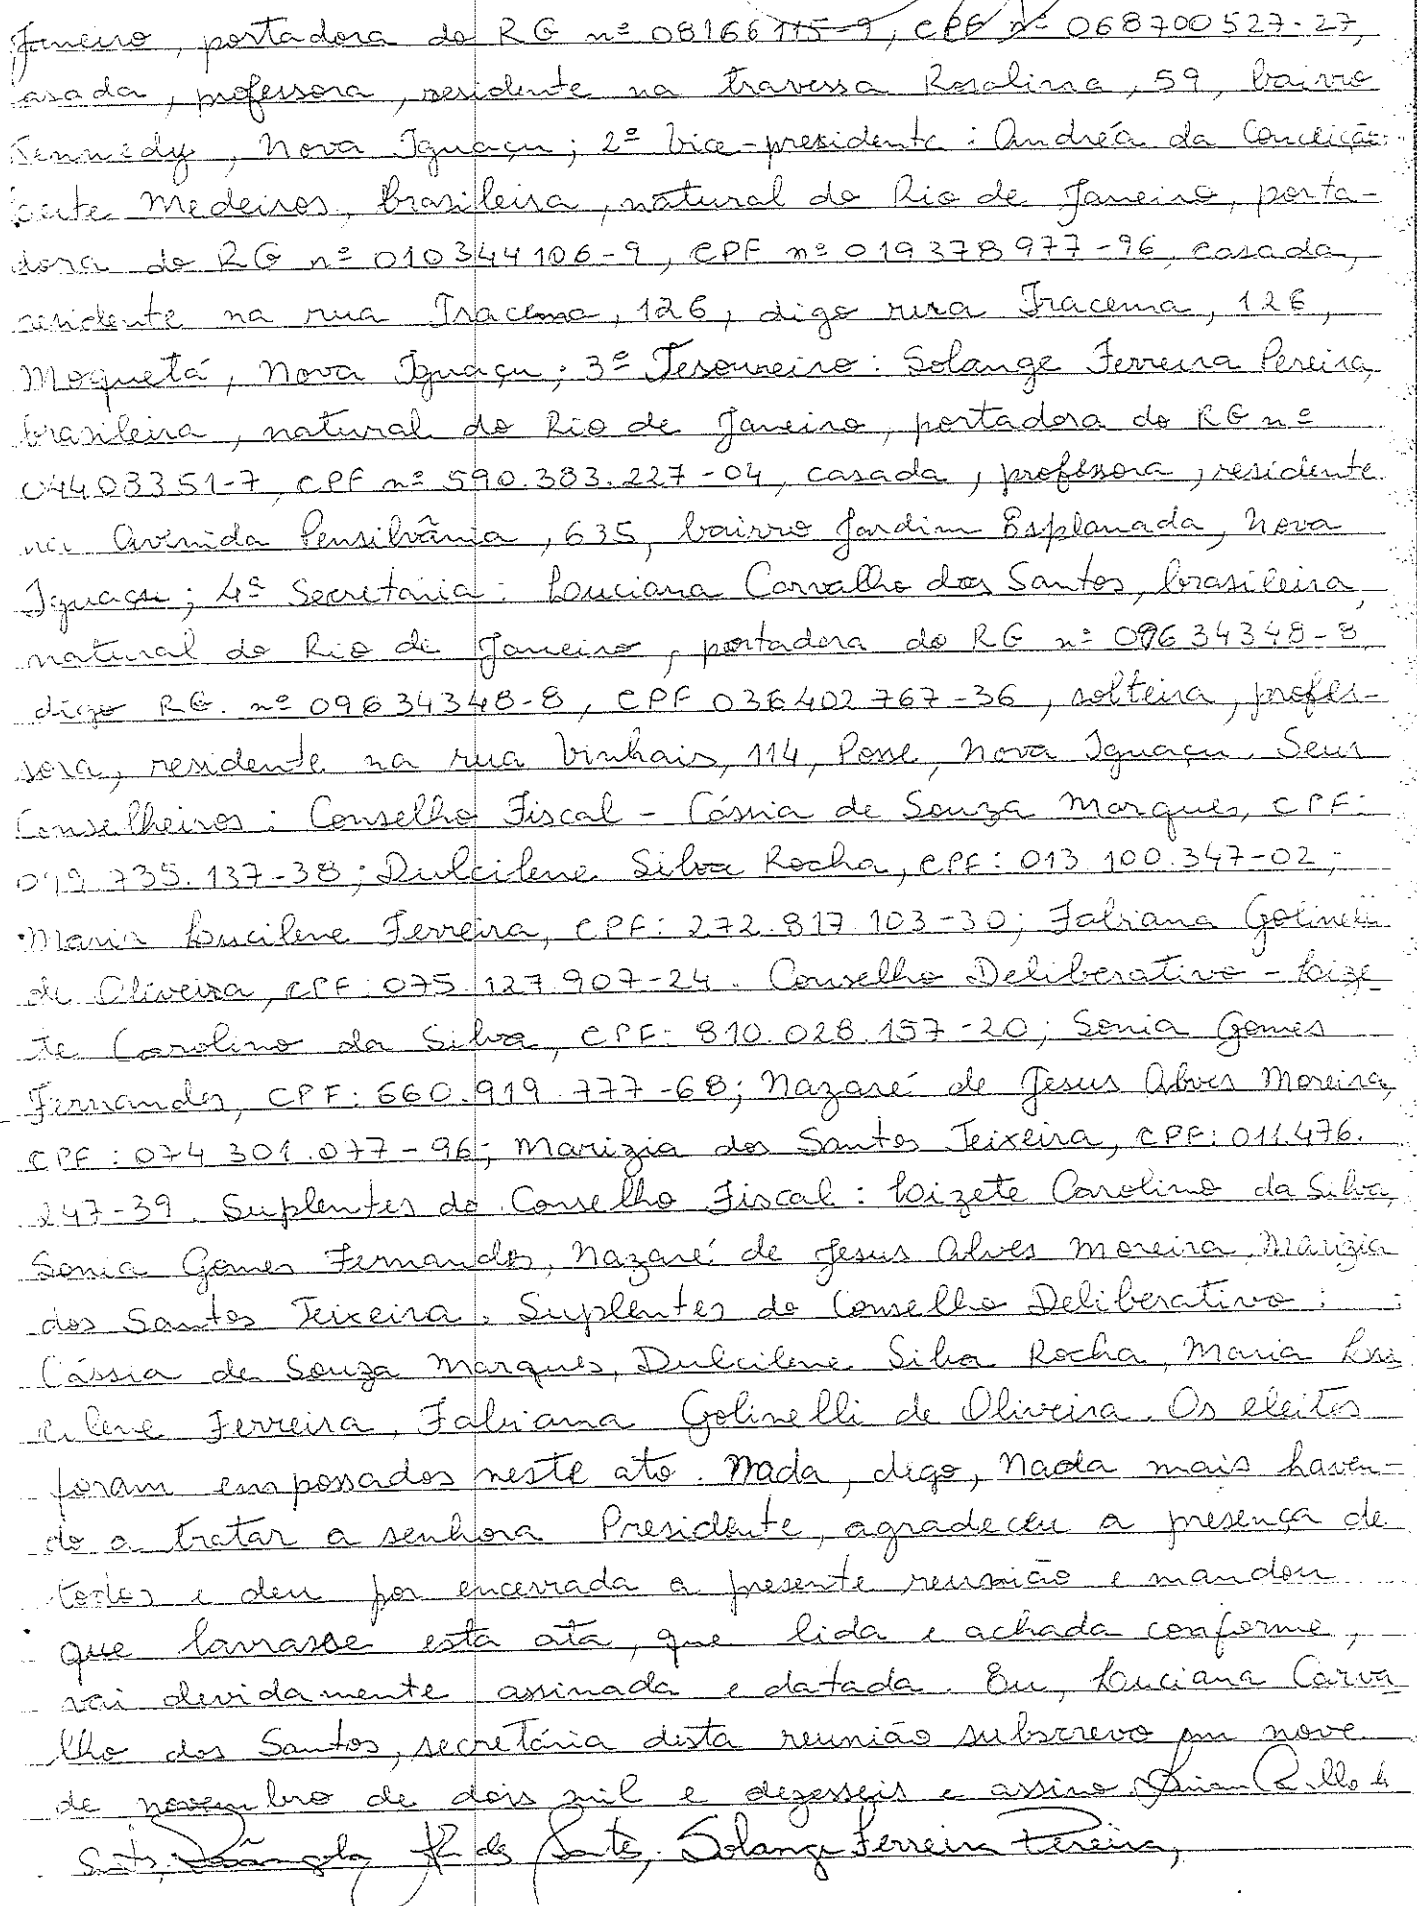 Janeiro, portadora do RG nº 08166115-9, CPF nº 068700527-27,
asada, professora, residente na travessa Rosalina, 59, bairro
Kennedy, Nova Iguaçu; 2º Vice-presidente: Andréa da Conceição
Medeiros, brasileira, natural do Rio de Janeiro, porta-
dora do RG nº 010344106-9, CPF nº 019378977-96, casada,
residente na rua Iracema, 126, digo rua Iracema, 126,
Moquetá, Nova Iguaçu; 3º Tesoureiro: Solange Ferreira Pereira,
brasileira, natural do Rio de Janeiro, portadora do RG nº
04408351-7, CPF nº 590.383.227-04, casada, professora, residente
na Avenida Pensilvânia, 635, bairro Jardim Esplanada, Nova
Iguaçu; 4ª Secretária: Luciana Carvalho dos Santos, brasileira,
natural do Rio de Janeiro, portadora do RG nº 09634348-8
digo RG. nº 09634348-8, CPF 036402767-36, solteira, profes-
sora, residente na rua Vinhais, 114, Posse, Nova Iguaçu. Seus
Conselheiros: Conselho Fiscal - Cássia de Souza Marques, CPF:
735.137-38; Dulcilene Silva Rocha, CPF: 013.100.347-02;
Maria Lucilene Ferreira, CPF: 272.817.103-30; Fabiana Golinelli
de Oliveira, CPF: 075.127.907-24. Conselho Deliberativo - Lize-
te Carolino da Silva, CPF: 810.028.157-20; Sonia Gomes
Fernandes, CPF: 660.919.777-68; Nazaré de Jesus Alves Moreira,
CPF: 074.301.077-96; Marizia dos Santos Teixeira, CPF: 011.476.
247-39. Suplentes do Conselho Fiscal: Lizete Carolino da Silva,
Sonia Gomes Fernandes, Nazaré de Jesus Alves Moreira, Marizia
dos Santos Teixeira. Suplentes do Conselho Deliberativo:
Cássia de Souza Marques, Dulcilene Silva Rocha, Maria Lu
cilene Ferreira, Fabiana Golinelli de Oliveira. Os eleitos
foram empossados neste ato. Nada, digo, Nada mais haven-
do a tratar a senhora Presidente, agradeceu a presença de
todos e deu por encerrada a presente reunião e mandou
que lavrasse esta ata, que lida e achada conforme,
vai devidamente assinada e datada. Eu, Luciana Carva
lho dos Santos, secretária desta reunião subscrevo em nove
de novembro de dois mil e dezesseis e assino.
Solange Ferreira Pereira,